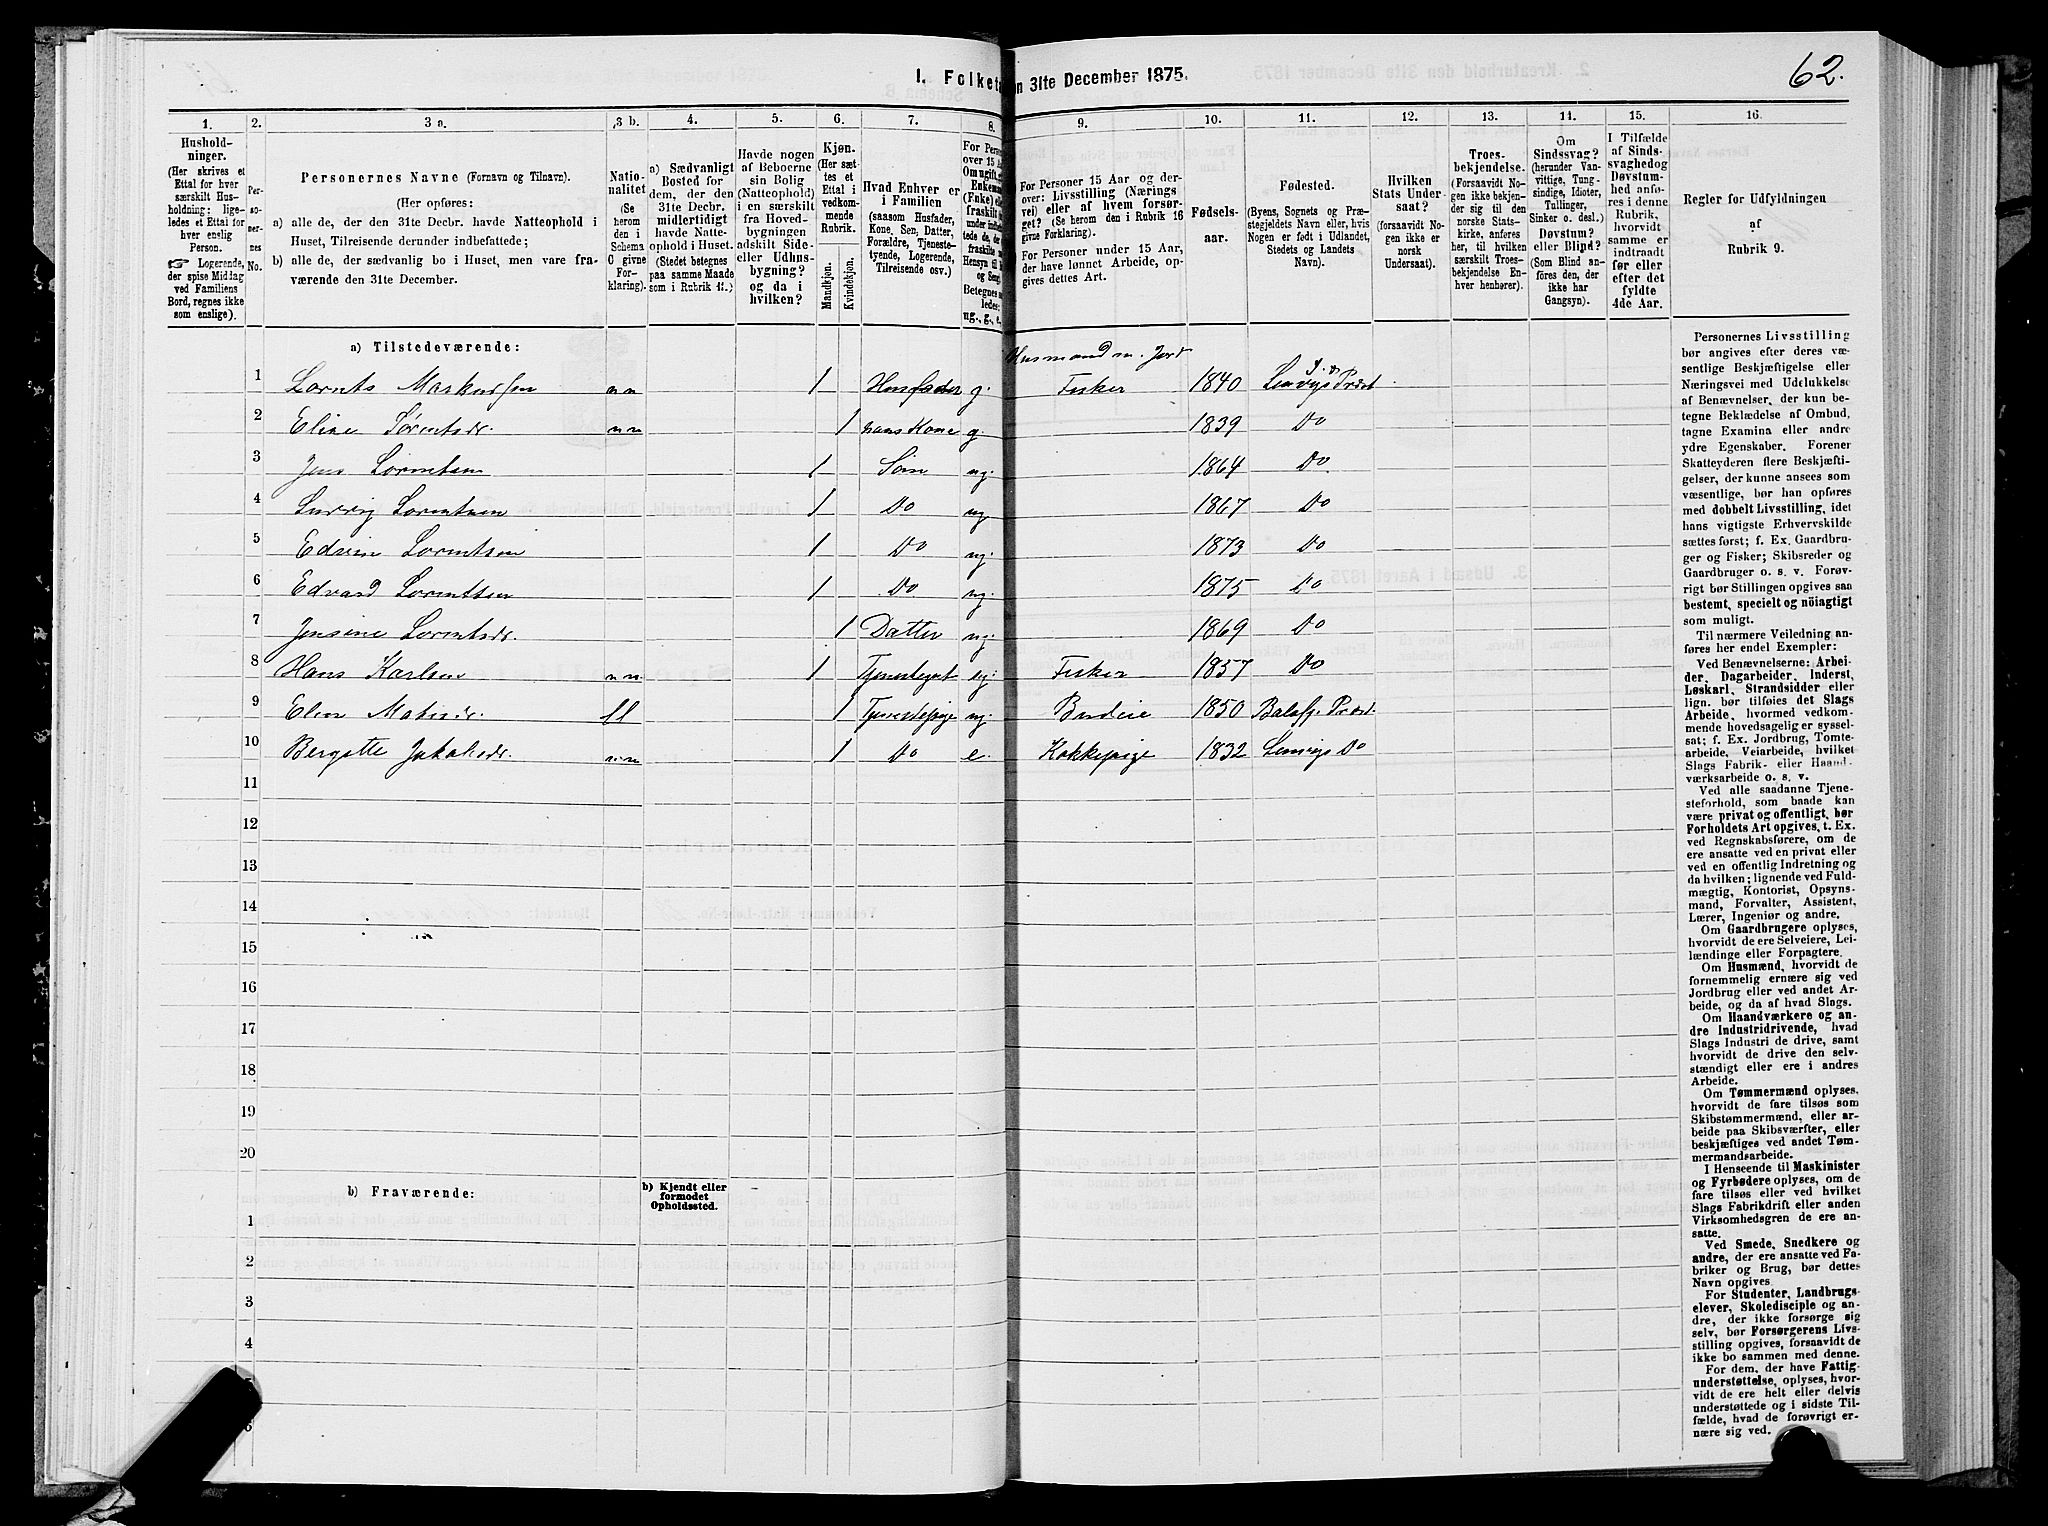 62.
I. Folketa
en 31te December 1875.
1.
2.
3 a.
3 b.
4.
5.
6.
7.
8.
9.
10.
11.
12.
13.
14.
15.
16.
Hushold-
ninger.
(Her skrives et
Ettal for hver
særskilt Hus-
holdning; lige-
ledes et Ettal for
hver enslig
Person.
☞ Logerende,
der spise Middag
ved Familiens
Bord, regnes ikke
som enslige).
Per-
so-
ner-
nes
No.
Personernes Navne (Fornavn og Tilnavn).
(Her opføres:
a) alle de, der den 31te Decbr. havde Natteophold i
Huset, Tilreisende derunder indbefattede;
b) alle de, der sædvanlig bo i Huset, men vare fra-
værende den 31te December.
Natio-
nalitet
(Se
herom
den i
Schema
C givne
For-
klaring).
a) Sædvanligt
Bosted for
dem, der den
31te Decbr.
midlertidigt
havde Natte-
ophold i Huset.
(Stedet betegnes
paa samme Maade
som i Rubrik 11.)
Havde nogen
af Beboerne
sin Bolig
(Natteophold)
i en særskilt
fra Hoved-
bygningen
adskilt Side-
eller Udhus-
bygning?
og da i
hvilken?
Kjøn.
(Her sæt-
tes et
Ettal i
vedkom-
mende
Rubrik.
Mandkjøn.
Kvindekjøn.
Hvad Enhver er
i Familien
(saasom Husfader,
Kone, Søn, Datter,
Forældre, Tjeneste-
tyende, Logerende,
Tilreisende osv.)
For Personer 15 Aar og der-
over: Livsstilling (Nærings
vei) eller af hvem forsør-
get? (Se herom den i Rubrik 16
givne Forklaring).
For Personer under 15 Aar,
der have lønnet Arbeide, op-
gives dettes Art.
Fødsels-
aar.
Fødested.
(Byens, Sognets og Præ-
stegjeldets Navn eller, hvis
Nogen er født i Udlandet,
Stedets og Landets
Navn).
Hvilken
Stats Under-
saat?
(forsaavidt No-
gen ikke er
norsk
Undersaat).
Troes-
bekjendelse.
(Forsaavidt No-
gen ikke bekjen-
der sig til den
norske Stats-
kirke, anføres
her, til hvilken
særskilt Troes-
bekjendelse En-
hver henhører).
Om
Sindssvag?
(herunder Van-
vittige, Tung-
sindige, Idioter,
Tullinger,
Sinker o. desl.)
Døvstum?
eller Blind?
(Som Blind an-
føres den, der
ikke har
Gangsyn).
I Tilfælde
af Sinds-
svaghed og
Døvstum-
hed anfø-
res i denne
Rubrik,
hvorvidt
samme er
indtraadt
før eller
efter det
fyldte
4de Aar.
Regler for Udfyldningen
af
Rubrik 9.
a) Tilstedeværende:
Husmand m. Jord
1 Lornts Markussen nn 1 Husfader g. Fisker 1840 Lenvigs Præst.
2 Eline Lorntsdr. nn 1 hans Kone g. 1839 Do
3 Jens Lorntsen 1 Søn ug. 1864 Do
4 Ludvig Lorntsen 1 Do ug 1867 Do
5 Edvin Lorntsen 1 Do ug. 1873 Do
6 Edvard Lorntsen 1 Do ug. 1875 Do
7 Jensine Lorntsdr. 1 Datter ug. 1869 Do
8 Hans Karlsen nn 1 Tjenestegut ug: Fisker 1857 Do
9 Elen Matisdr. ll 1 Tjenestepige ug. Budeie 1850 Balsfj. Præst.
10 Bergitte Jakobsdr. nn 1 Do e. Kokkepige 1832 Lenvigs Do
11
12
13
14
15
16
17
18
19
20
b) Fraværende:
b) Kjendt eller
formodet
Opholdssted.
1
2
3
4
Personernes Livsstilling
bør angives efter deres væ-
sentlige Beskjæftigelse eller
Næringsvei med Udelukkelse
af Benævnelser, der kun be-
tegne Beklædelse af Ombud,
tagne Examina eller andre
ydre Egenskaber. Forener
Skatteyderen flere Beskjæfti-
gelser, der kunne ansees som
væsentlige, bør han opføres
med dobbelt Livsstilling, idet
hans vigtigste Erhvervskilde
sættes først; f. Ex. Gaardbru-
ger og Fisker; Skibsreder og
Gaardbruger o. s. v. Forøv-
rigt bør Stillingen opgives saa
bestemt, specielt og nöiagtigt
som muligt.
Til nærmere Veiledning an-
føres her endel Exempler:
Ved Benævnelserne: Arbei-
der, Dagarbeider, Inderst,
Løskarl, Strandsidder eller
lign. bør tilføies det Slags
Arbeide, hvormed vedkom-
mende hovedsagelig er syssel-
sat; f. Ex. Jordbrug, Tomte-
arbeide, Veiarbeide, hvilket
Slags Fabrik- eller Haand-
værksarbeide o. s. v.
Ved alle saadanne Tjene-
steforhold, som baade kan
være privat og offentligt, bør
Forholdets Art opgives, t. Ex.
ved Regnskabsførere, om de
ere ansatte ved en privat eller
ved en offentlig Indretning og
da hvilken; lignende ved Fuld-
mægtig, Kontorist, Opsyns-
mand, Forvalter, Assistent,
Lærer, Ingeniør og andre.
Om Gaardbrugere oplyses,
hvorvidt de ere Selveiere, Lei-
lændinge eller Forpagtere.
Om Husmænd, hvorvidt de
fornemmelig ernære sig ved
Jordbrug eller ved andet Ar-
beide, og da af hvad Slags.
Om Haandværkere og an-
dre Industridrivende, hvad
Slags Industri de drive, samt
hvorvidt de drive den selv-
stændigt eller ere i andres
Arbeide.
Om Tømmermænd oplyses,
hvorvidt de fare tilsøs som
Skibstømmermænd, eller ar-
beide paa Skibsværfter, eller
beskjæftiges ved andet Tøm-
mermandsarbeide.
I Henseende til Maskinister
og Fyrbødere oplyses, om de
fare tilsøs eller ved hvilket
Slags Fabrikdrift eller anden
Virksomhedsgren de ere an-
satte.
Ved Smede, Snedkere og
andre, der ere ansatte ved Fa-
briker og Brug, bør dettes
Navn opgives.
For Studenter, Landbrugs-
elever, Skoledisciple og an-
dre, der ikke forsørge sig
selv, bør Forsørgerens Livs-
stilling opgives, forsaavidt de
ikke bo sammen med denne.
For dem, der have Fattig-
understøttelse, oplyses, hvor-
vidt de ere helt eller delvis
understøttede og i sidste Til-
fælde, hvad de forøvrigt er-
nære sig ved.